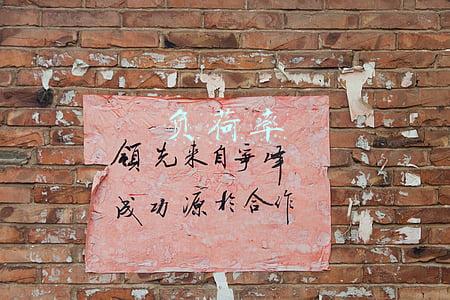 负荷率
领先来自争峰
成功源於合作